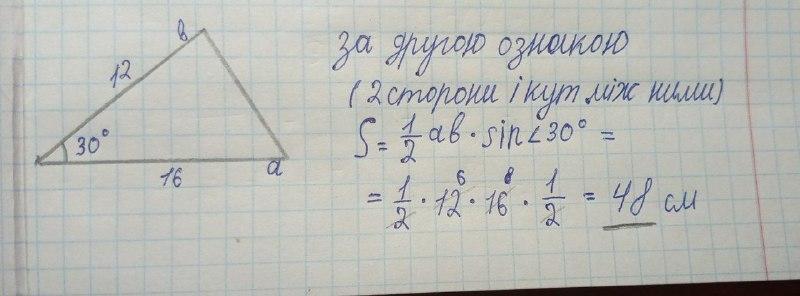 в
12
30°
16
а
за другою ознакою
(2 сторони і кут між ними)
S = 1/2 ab · sin∠30° =
= 1/2 · 12 6 · 16 8 · 1/2 = 48 см